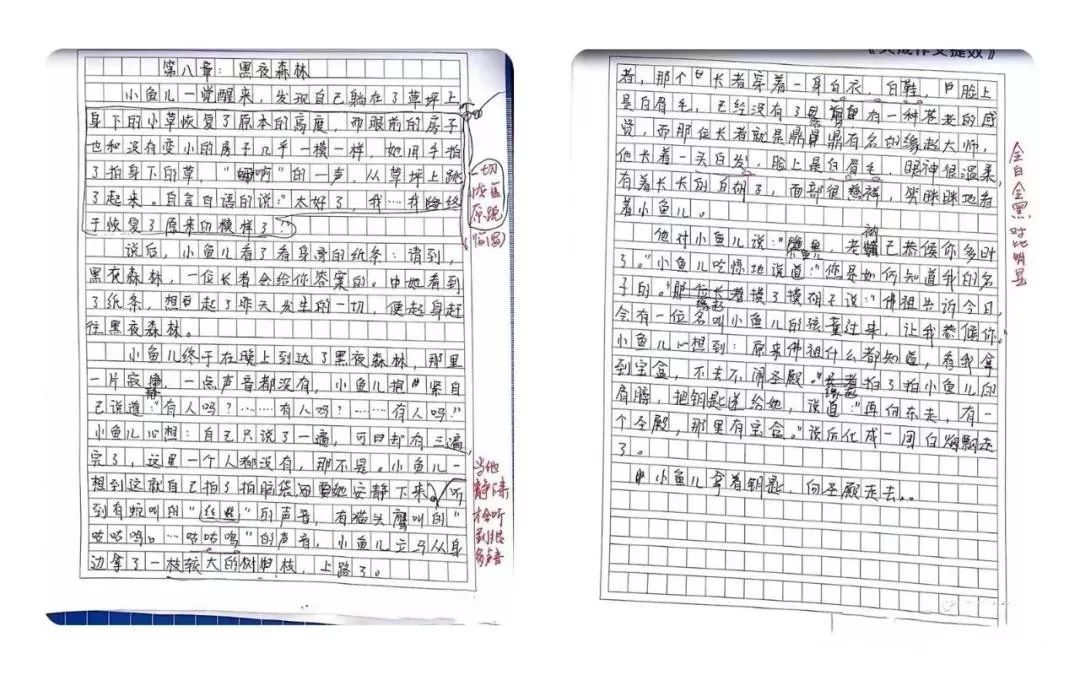 第八章：黑夜森林
小鱼儿一觉醒来，发现自己躺在了草坪上
身下的小草恢复了原本的高度，而眼前的房子
也和没有变小的房子几乎一模一样，她用手拍
了拍身下的草，“ ”的一声，从草坪上跳
了起来。自言自语的说：“太好了，我…我终
于恢复了原来的模样了！”
说后，小鱼儿看了看身旁的纸条：请到，
黑夜森林，一位长者会给你答案的。 她看到
了纸条，想起了昨天发生的一切，便起身赶
往黑夜森林。
小鱼儿终于在晚上到达了黑夜森林，那里
一片寂静，一点声音都没有，小鱼儿抱紧自
己说道：“有人吗？……有人吗？……有人吗？”
小鱼儿心想：自己只说了一遍，可 却有三遍，
完了，这里一个人都没有，那不是。小鱼儿一
想到这就自己拍了拍脑袋， 她安静下来，听
到有蛇叫的“丝丝”的声音，有猫头鹰叫的“
咕咕呜。…咕咕呜”的声音，小鱼儿立马从身
边拿了一枝较大的树枝，上路了。
一切
恢复
原貌
当他
静下来
才会听
到很
多声音
《 作文提效》
者，那个长者穿着一身白衣，白鞋，脸上
是白眉毛，已经没有了 有一种苍老的感
觉，而那位长者就是鼎鼎有名的缘起大师，
他长着一头白发，脸上是白眉毛，眼神很温柔，
有着长长的白胡子，面部很慈祥，笑眯眯地看
着小鱼儿。
他对小鱼儿说：“ ，老衲已恭候你多时
了。”小鱼儿吃惊地说道：“你是如何知道我的名
子的。” 缘起摸了摸胡子说：“佛祖告诉今日，
会有一位名叫小鱼儿的孩童过来，让我恭候你。”
小鱼儿心想到：原来佛祖什么都知道，看我拿
到宝盒，不去不闹圣殿。 缘起拍了拍小鱼儿的
肩膀，把钥匙送给她，说道：“再向东走，有一
个圣殿，那里有宝盒。”说后化成一团白烟飘走
了。
小鱼儿拿着钥匙，向圣殿走去。。
全白全黑
对比明显